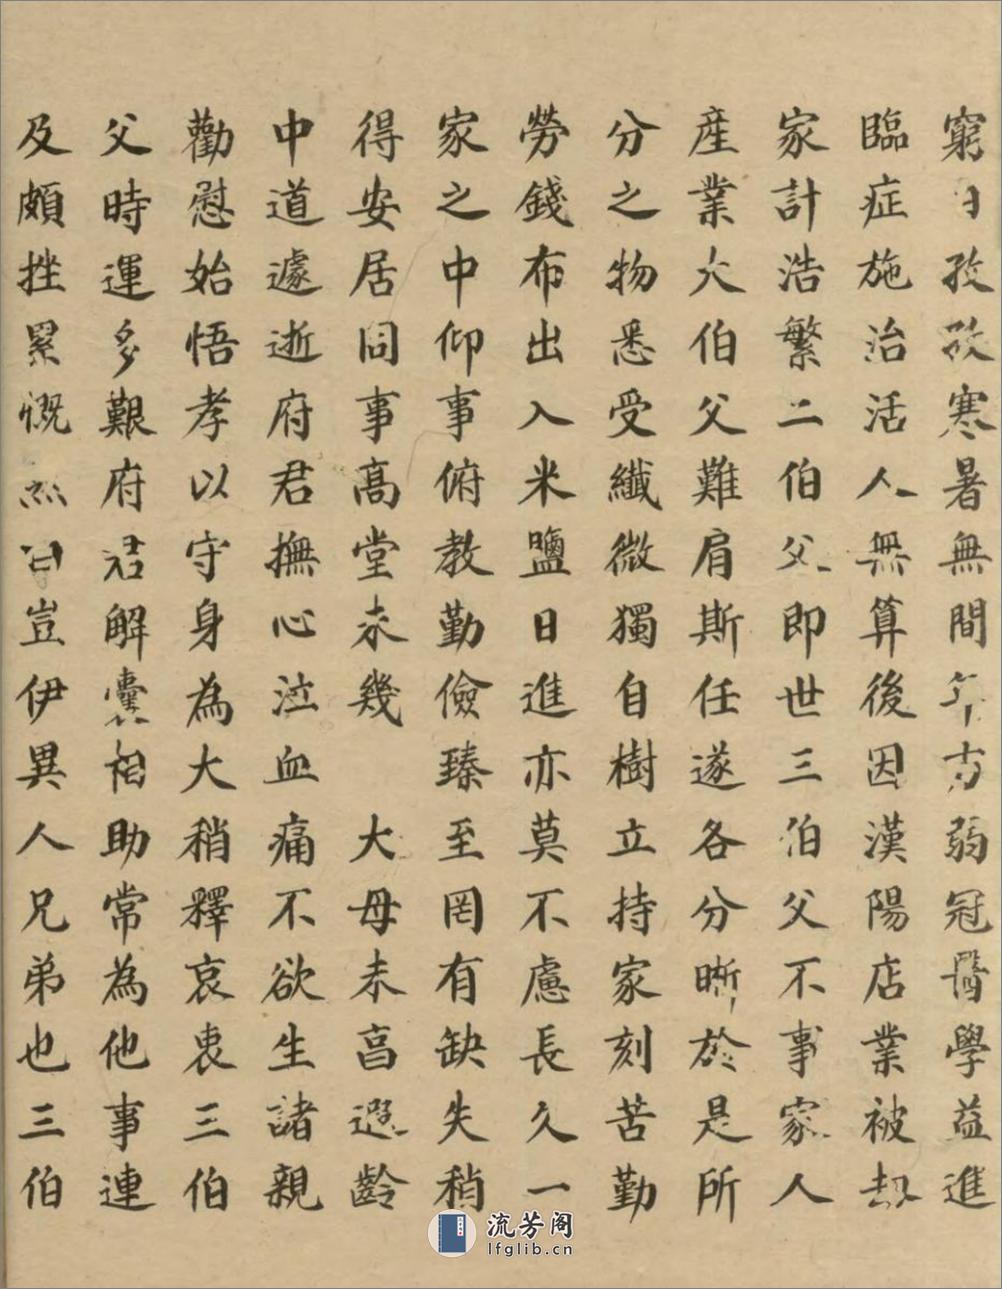 窮日孜孜寒暑無間年方弱冠醫學益進
臨症施治活人無算後因漢陽店業被劫
家計浩繁二伯父即世三伯父不事家人
産業大伯父難肩斯任遂各分晰於是所
分之物悉受纖微獨自樹立持家刻苦勤
勞錢布出入米鹽日進亦莫不慮長久一
家之中仰事俯教勤儉臻至罔有缺失稍
得安居同事高堂未幾 大母未享遐齡
中道遽逝府君撫心泣血痛不欲生諸親
勸慰始悟孝以守身為大稍釋哀衷三伯
父時運多艱府君解囊相助常為他事連
及頗挫累慨然曰豈伊異人兄弟也三伯
流芳阁
lfglib.cn